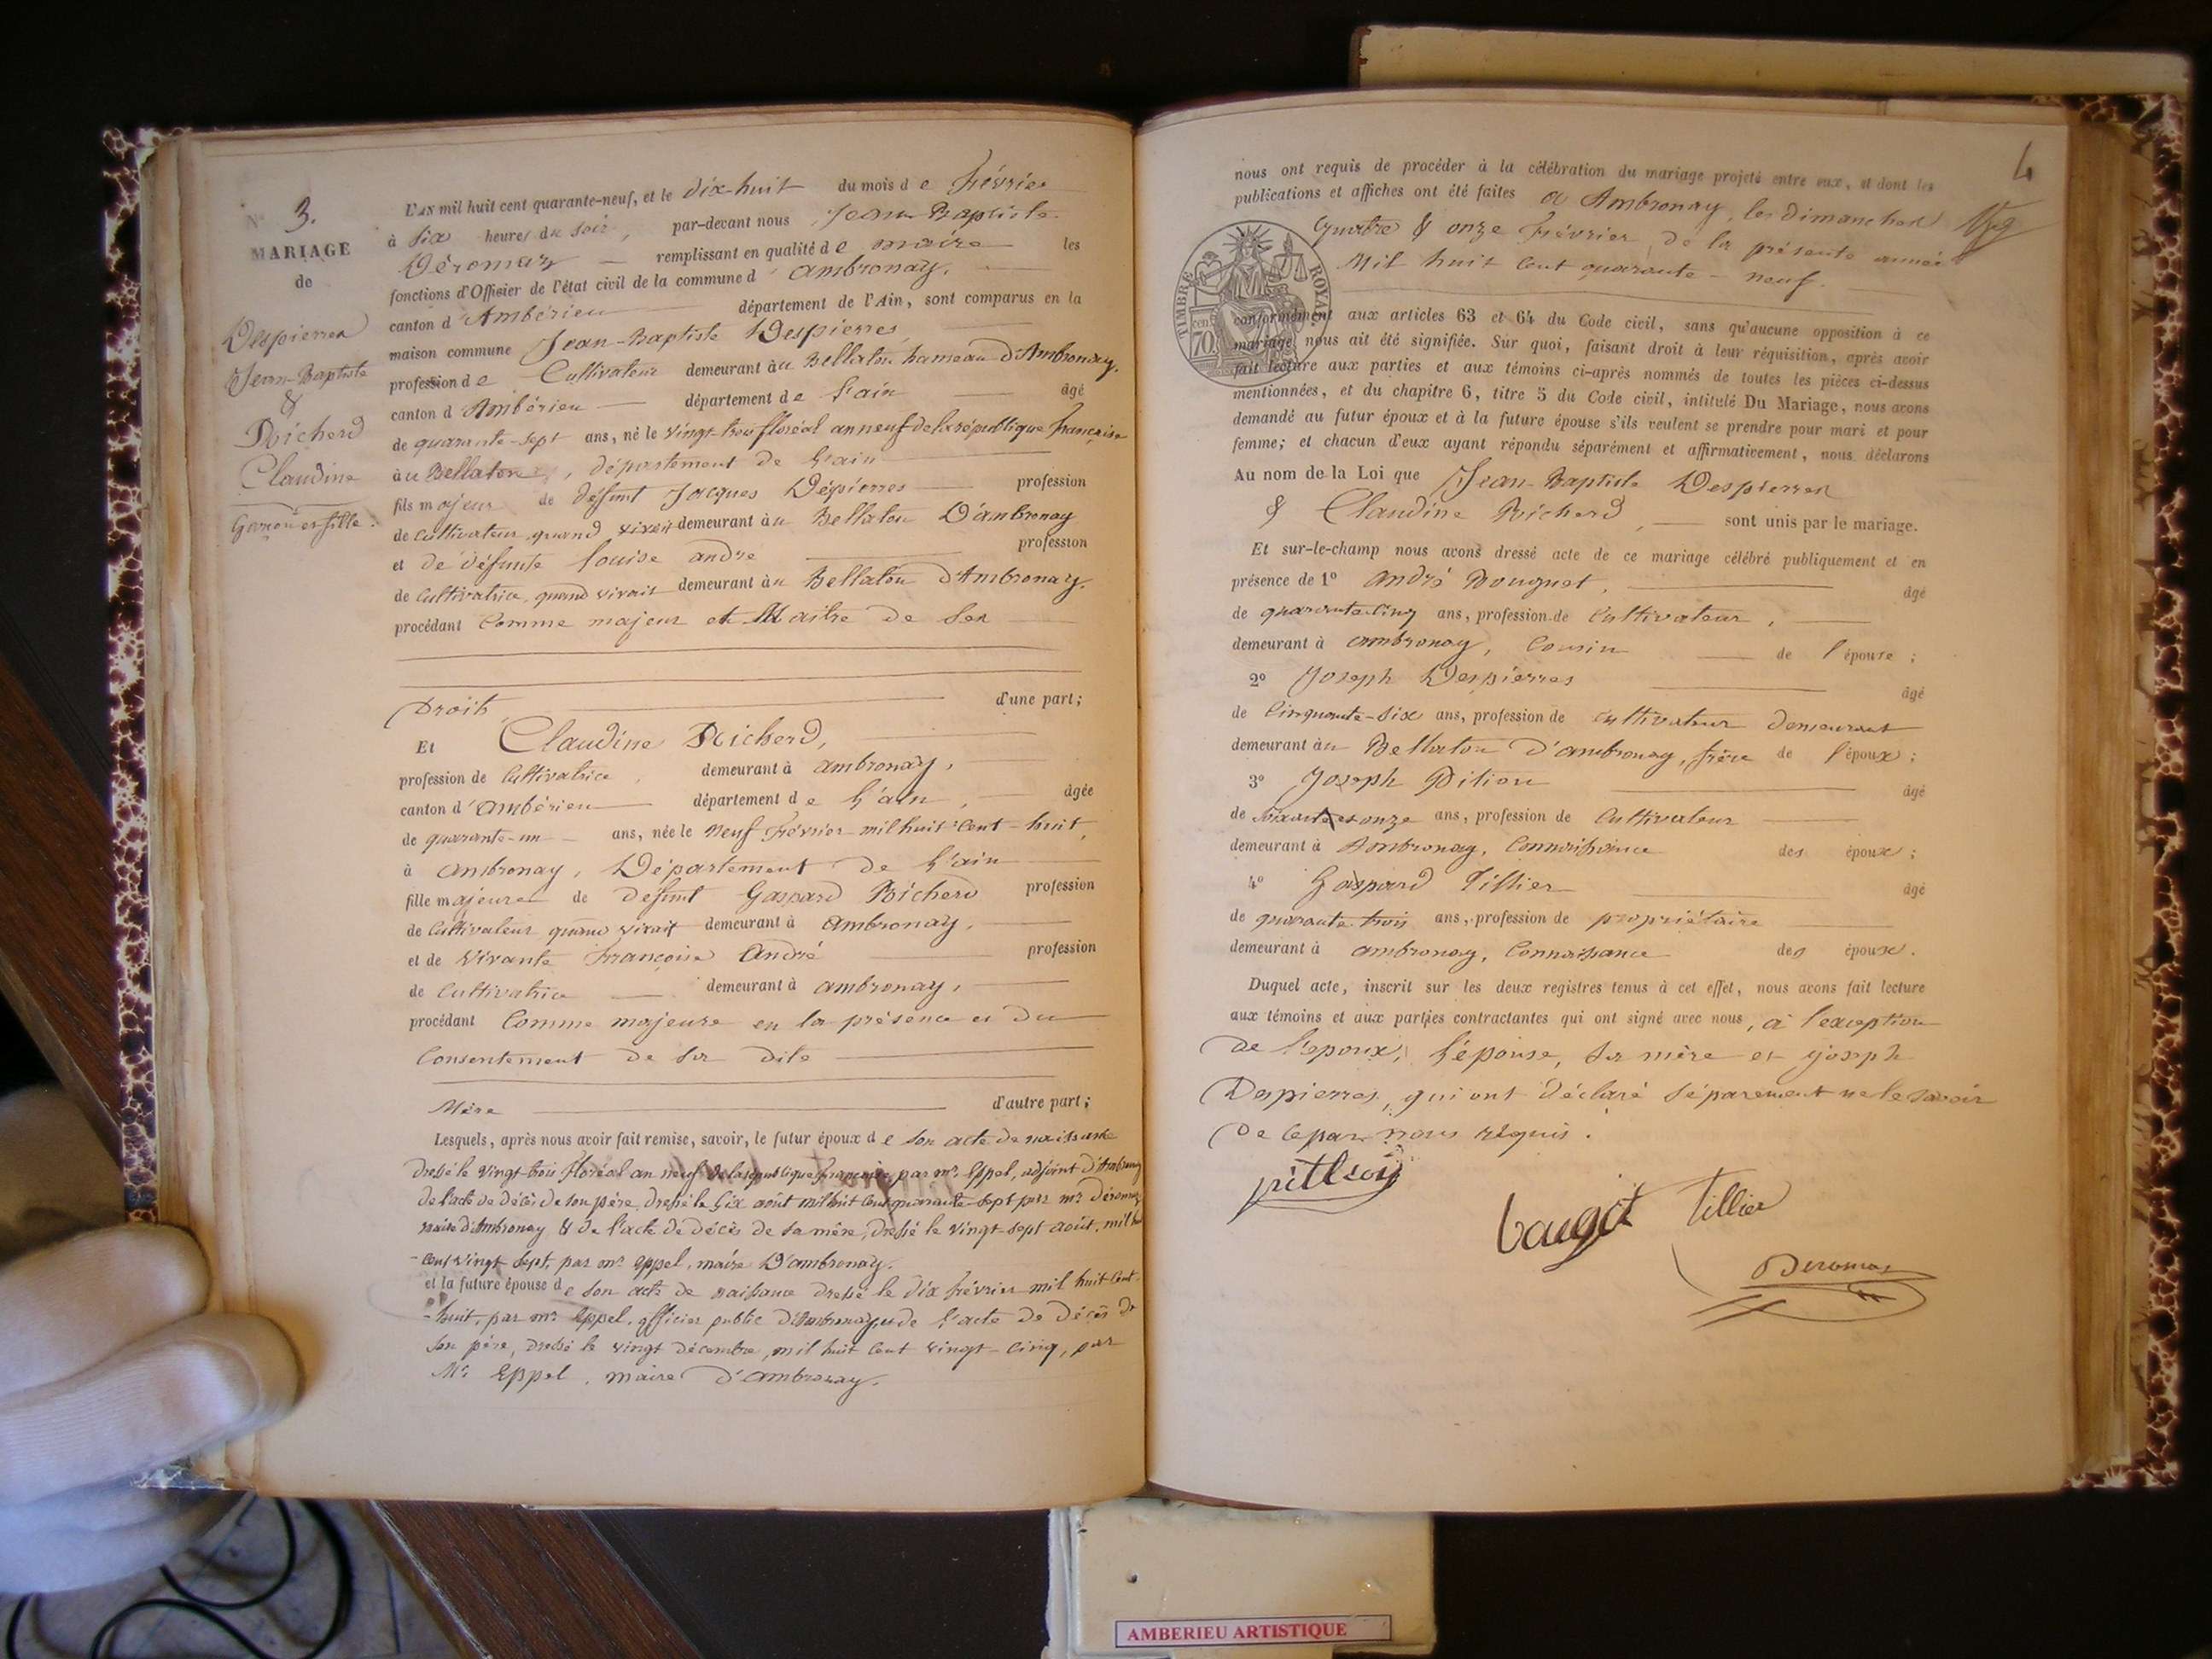 N° 3.
MARIAGE
de
Despierres
Jean-Baptiste
&
Richerd
Claudine
Garçon et fille.
L'AN mil huit cent quarante-neuf, et le dix-huit du mois de Février
à six heures du soir, par-devant nous Jean-Baptiste
Déromas — remplissant en qualité de maire les
fonctions d'Officier de l'état civil de la commune d'Ambronay,
canton d'Ambérieu département de l'Ain, sont comparus en la
maison commune Jean-Baptiste Despierres,
profession de Cultivateur demeurant au Bellaton hameau d'Ambronay,
canton d'Ambérieu — département de l'ain — âgé
de quarante-sept ans, né le vingt-trois floréal an neuf de la république française
au Bellaton, département de l'ain
fils majeur de défunt Jacques Dépierres — profession
de cultivateur quand vivait demeurant au Bellaton D'ambronay
et de défunte louise andre profession
de Cultivatrice, quand vivait demeurant au Bellaton d'Ambronay.
procédant Comme majeur et Maitre de ses
Droits d'une part;
Et Claudine Richerd,
profession de Cultivatrice, demeurant à ambronay,
canton d'ambérieu — département de l'ain, — âgée
de quarante-un — ans, née le neuf Février mil huit cent-huit,
à ambronay, Département de l'ain
fille majeure de défunt Gaspard Richerd profession
de Cultivateur quand vivait demeurant à ambronay,
et de vivante françoise andré profession
de Cultivatrice — demeurant à ambronay,
procédant Comme majeure en la présence et du
Consentement de sa dite
Mère d'autre part;
Lesquels, après nous avoir fait remise, savoir, le futur époux de son acte de naissance
dressé le vingt-trois floréal an neuf de la république française par mr. Eppel, adjoint d'Ambronay
de l'acte de décès de son père, dressé le six août mil huit cent quarante-sept par mr Déromas
maire d'Ambronay & de l'acte de décès de sa mère, dressé le vingt-sept août, mil hui
-cent vingt sept, par mr. eppel, maire D'ambronay.
et la future épouse de son acte de naissance dressé le dix février mil huit cent
-huit, par mr. Eppel, officier public d'Ambronay et de l'acte de décès de
son père, dressé le vingt décembre, mil huit cent vingt-cinq, par
Mr. Eppel, maire d'ambronay.
4
nous ont requis de procéder à la célébration du mariage projeté entre eux, et dont les
publications et affiches ont été faites à Ambronay, les dimanches
quatre & onze Février, de la présente année
Mil huit cent quarante-neuf.
TIMBRE ROYAL
cent. 70.
conformément aux articles 63 et 64 du Code civil, sans qu'aucune opposition à ce
mariage nous ait été signifiée. Sur quoi, faisant droit à leur réquisition, après avoir
fait lecture aux parties et aux témoins ci-après nommés de toutes les pièces ci-dessus
mentionnées, et du chapitre 6, titre 5 du Code civil, intitulé Du Mariage, nous avons
demandé au futur époux et à la future épouse s'ils veulent se prendre pour mari et pour
femme; et chacun d'eux ayant répondu séparément et affirmativement, nous déclarons
Au nom de la Loi que Jean-Baptiste Despierres
& Claudine Richerd, — sont unis par le mariage.
Et sur-le-champ nous avons dressé acte de ce mariage célébré publiquement et en
présence de 1° andré Bouguet, âgé
de quarante-cinq ans, profession de Cultivateur,
demeurant à ambronay, Cousin — de l'épouse;
2° Joseph Despierres âgé
de cinquante-six ans, profession de cultivateur demeurant
demeurant au Bellaton d'ambronay, frère de l'époux;
3° Joseph Pition âgé
de soixante et onze ans, profession de Cultivateur
demeurant à Ambronay, Connaissance des époux;
4° Gaspard Tillier âgé
de quarante-trois ans, profession de propriétaire
demeurant à ambronay, Connaissance des époux.
Duquel acte, inscrit sur les deux registres tenus à cet effet, nous avons fait lecture
aux témoins et aux parties contractantes qui ont signé avec nous, à l'exception
de l'époux, l'épouse, sa mère et joseph
Despierres, qui ont déclaré séparément ne le savoir
de ce par nous requis.
Tillier
Deromas
AMBERIEU ARTISTIQUE